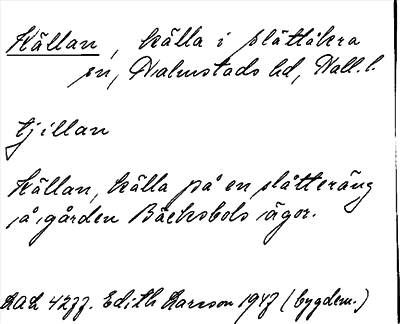 Källan, källa i Slättåkra
sn, Halmstads hd, Hall. l.
tjillan
Källan, källa på en slåtteräng
på gården Bäcksbols ägor.
LAL 4277. Edith Larsson 1947 (bygdem.)